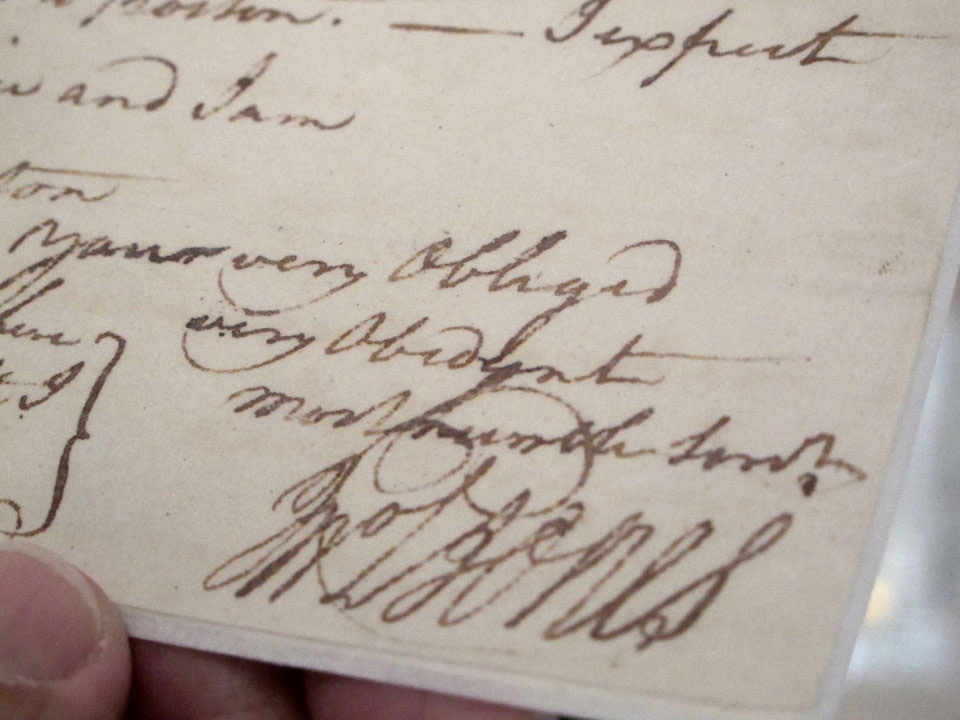 Boston. — I expect
and I am
ton
Your very Obliged
very Obedynt
most humble Servt
Jno Jones